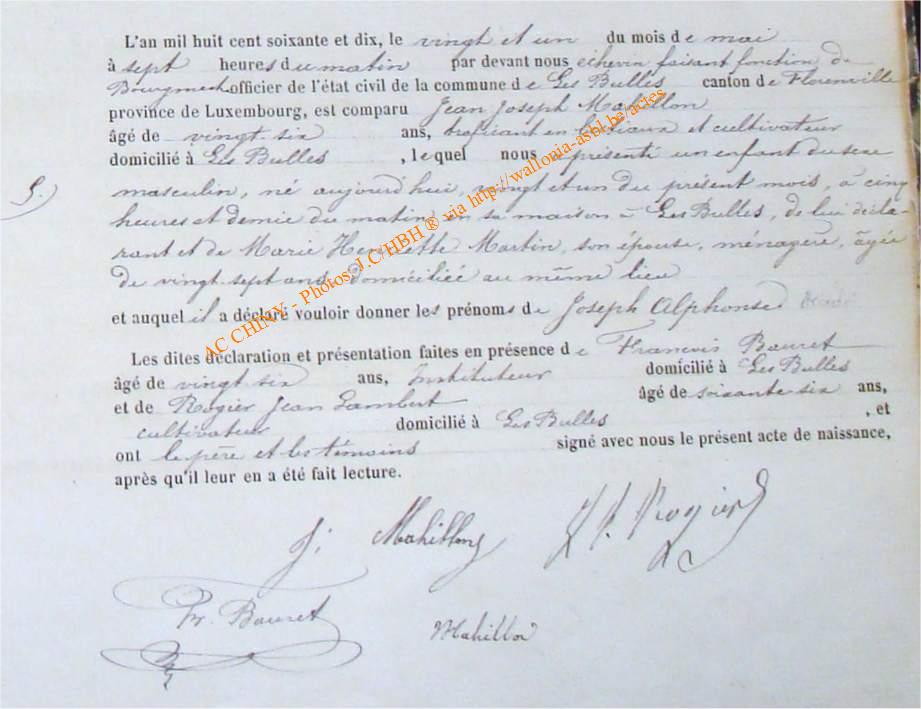 L'an mil huit cent soixante et dix, le vingt et un du mois de mai
à sept heures du matin par devant nous échevin faisant fonction de
Bourgmest. officier de l'état civil de la commune de Les Bulles canton de Florenville
province de Luxembourg, est comparu Jean Joseph Mahillon
âgé de vingt six ans, trafiquant en bestiaux et cultivateur
domicilié à Les Bulles, lequel nous a présenté un enfant du sexe
5.) masculin, né aujourd'hui, vingt et un du présent mois, à cinq
heures et demie du matin en sa maison à Les Bulles, de lui décla-
rant et de Marie Henriette Martin, son épouse, ménagère, âgée
de vingt sept ans, domiciliée au même lieu
et auquel il a déclaré vouloir donner les prénoms de Joseph Alphonse
Les dites déclaration et présentation faites en présence de François Bauret
âgé de vingt six ans, Instituteur domicilié à Les Bulles
et de Rogier Jean Lambert âgé de soixante six ans,
cultivateur domicilié à Les Bulles, et
ont le père et les témoins signé avec nous le présent acte de naissance,
après qu'il leur en a été fait lecture.
J. Mahillon J. L. Rogier
Fr. Bauret Mahillon
AC CHINY - Photos J.C/HBH ® via http://wallonia-asbl.be/actes